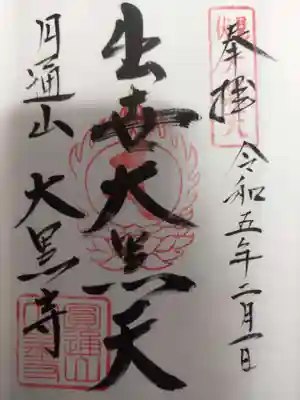 奉拝
令和五年二月一日
出世大黒天
円通山 大黒寺